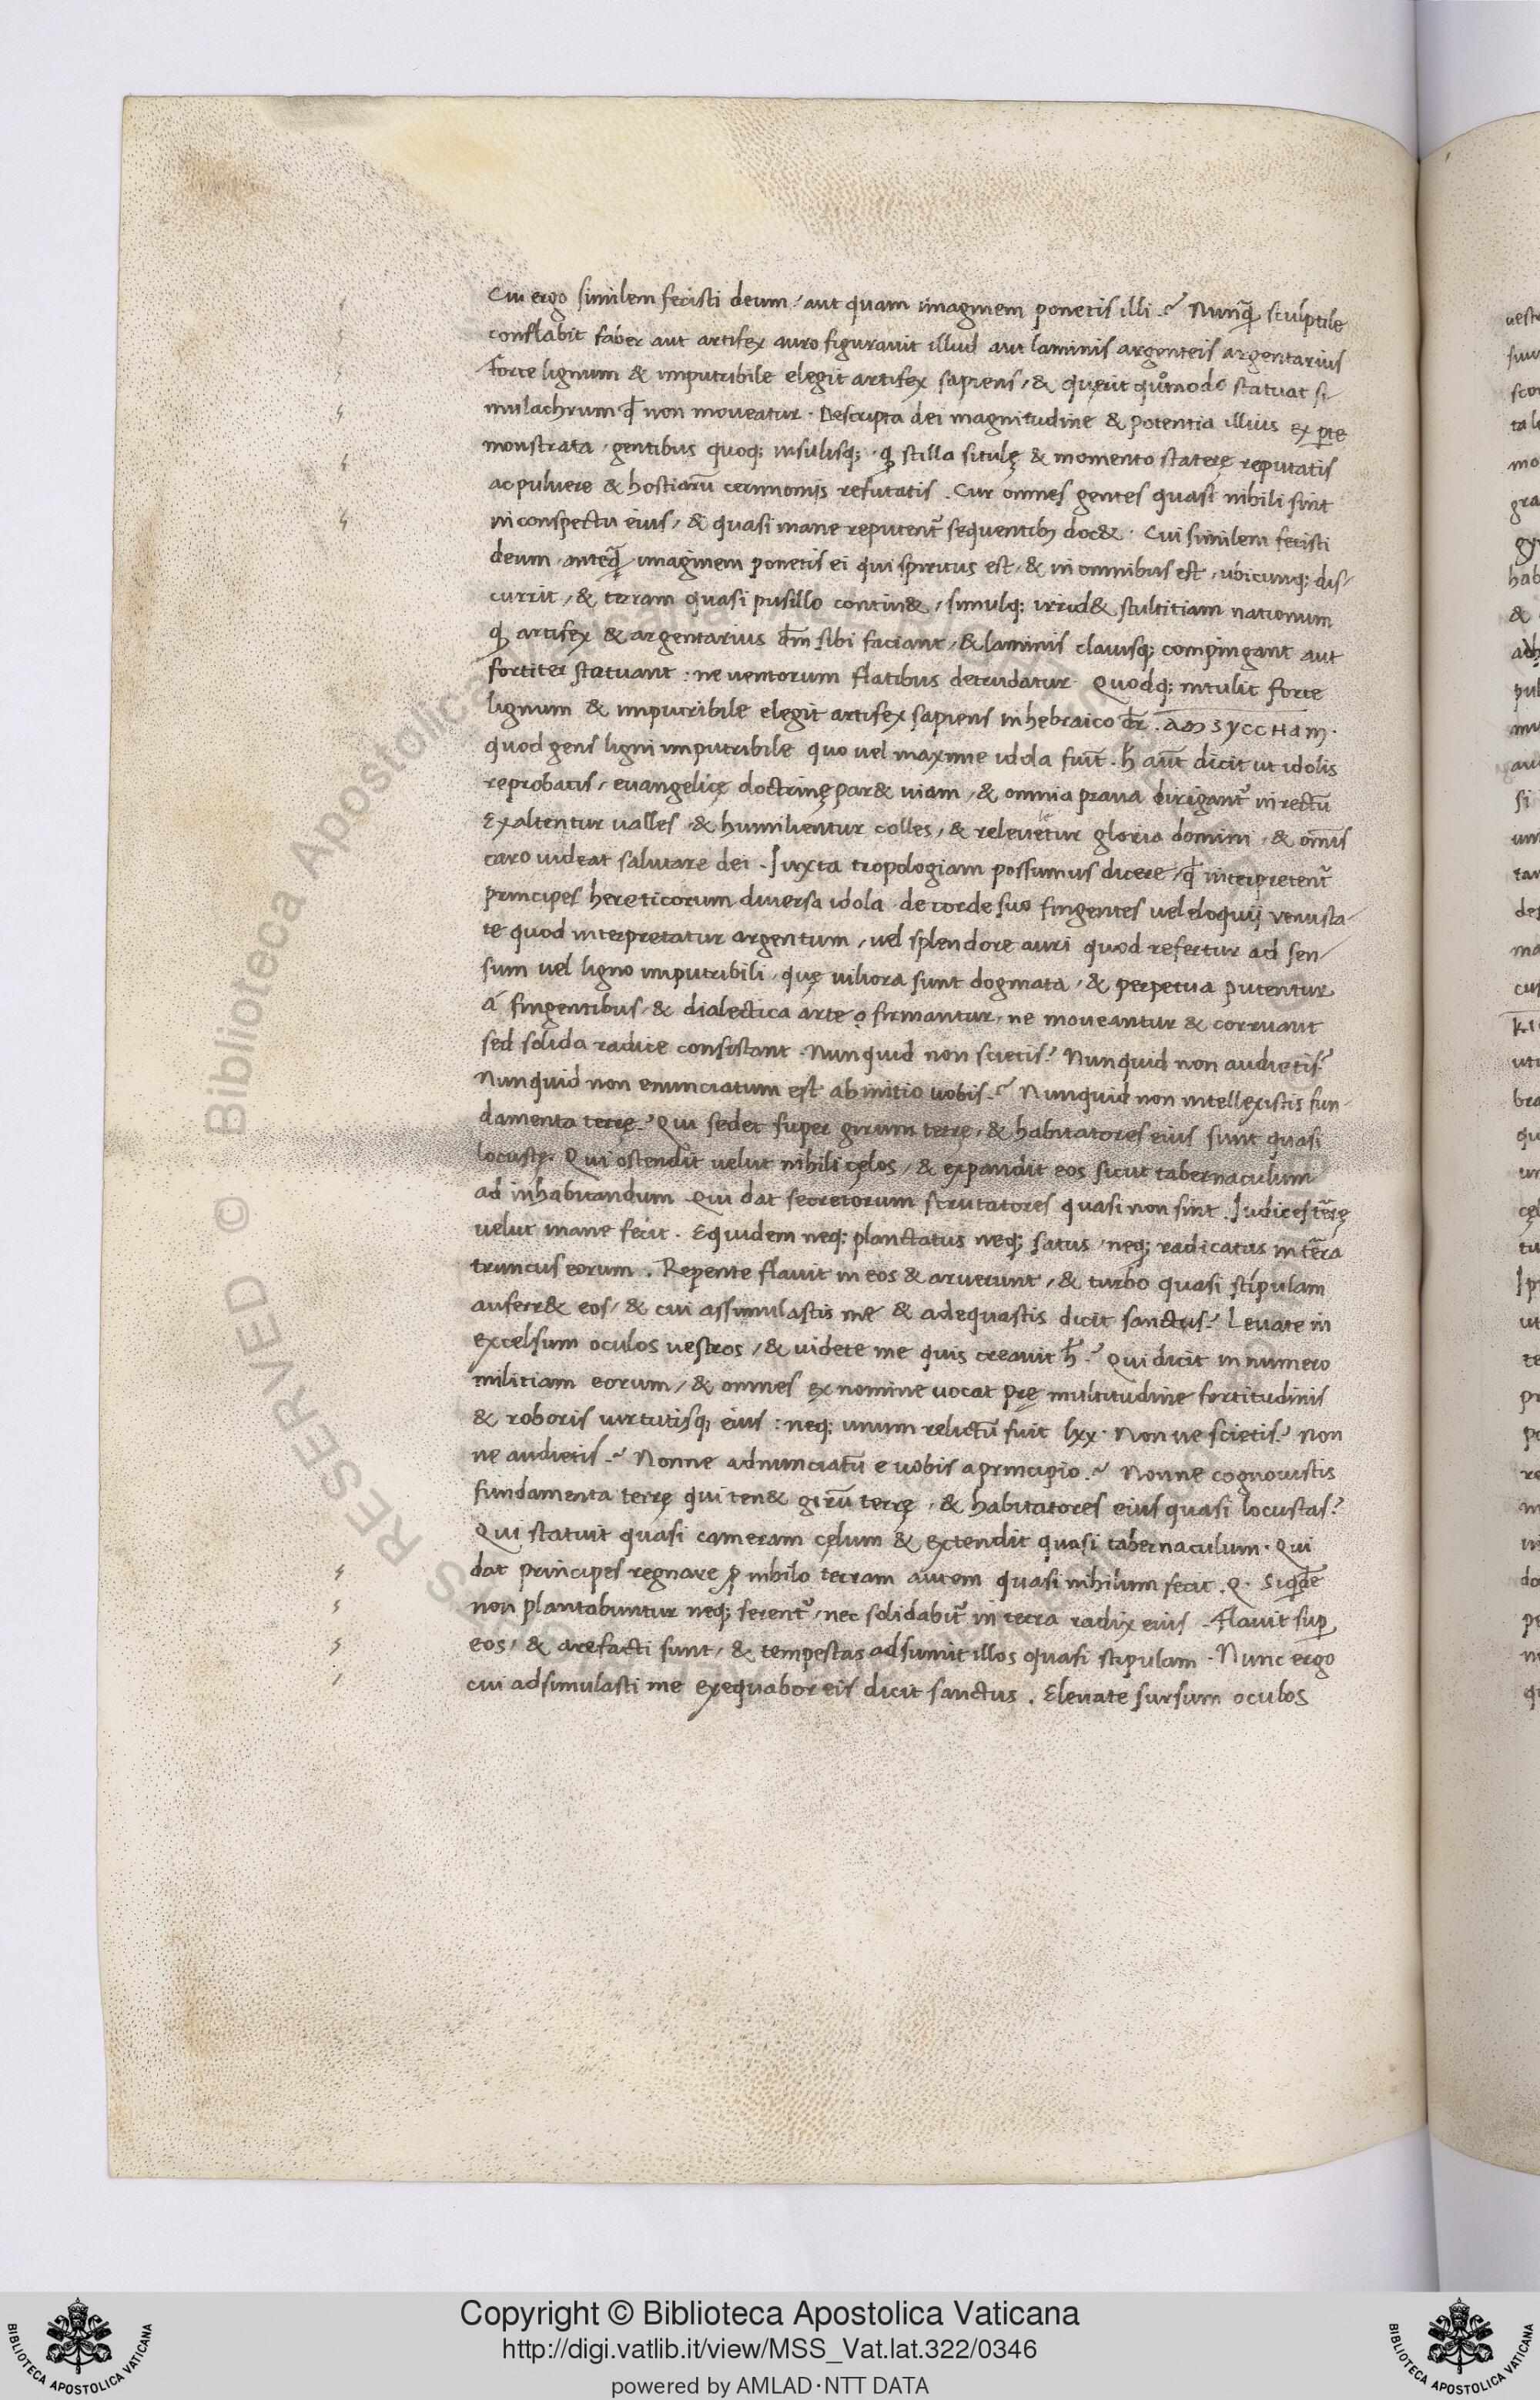 Cui ergo similem fecistis deum / aut quam imaginem ponetis illi ? Nunq̃ sculptile
conflabit faber aut artifex auro figurauit illud aut laminis argenteis argentarius
forte lignum & imputribile elegit artifex sapiens / & querit quomodo statuat si-
mulachrum q̄ non moueatur . Descripta dei magnitudine & potentia illius ex p̱te
monstrata / gentibus quoq; insulisq; · ꝙ stilla situlę & momento staterę reputatis
ac puluere & hostiarũ cerimoniis refutatis . Cur omnes gentes quasi nihili sint
in conspectu eius / & quasi inane reputent᷑ sequentib; doc& · Cui similem fecisti
deum · imaginem ponetis ei qui spiritus est / & in omnibus est / ubicunq; dis-
currit / & terram quasi pusillo contin& / simulq; irrid& stultitiam nationum
ꝙ artifex & argentarius dm̄ sibi faciant / & laminis clauisq; compingant aut
fortiter statuant : ne uentorum flatibus detrudatur · Quodq; intulit forte
lignum & imputribile elegit artifex sapiens in hebraico dr̄ . amsyccham ·
quod gens ligni imputribile quo uel maxime idola fiũt . h̄ aũt dicit ut idolis
reprobatis / euangelicę doctrinę par& uiam / & omnia praua dirigant᷑ in rectũ
Exaltentur ualles & humilientur colles / & releuetur gloria domini / & omīs
caro uideat salutare dei . Juxta tropologiam possumus dicere / q̄ interpretent᷑
principes hereticorum diuersa idola · de corde suo fingentes uel eloquij venusta-
te quod interpretatur argentum / uel splendore auri quod refertur ad sen-
sum uel ligno imputribili · quę uiliora sunt dogmata / & perpetua putentur
á fingentibus / & dialectica arte firmantur / ne moueantur & corruant
sed solida radice consistant . Nunquid non scietis ? Nunquid non audietis ?
Nunquid non enunciatum est ab initio uobis ? Nunquid non intellexistis fun-
damenta terrę ? Qui sedet super girum terrę / & habitatores eius sunt quasi
locustę . Qui ostendit uelut nihili cęlos / & expandit eos sicut tabernaculum
ad inhabitandum Qui dat secretorum scrutatores quasi non sint . Judices tẽrę
uelut inane fecit . Equidem neq; planctatus neq; satus / neq; radicatus in tẽra
truncus eorum . Repente flauit in eos & aruerunt / & turbo quasi stipulam
auferr& eos / & cui assimulastis me & adequastis dicit sanctus ? Leuate in
excelsum oculos uestros / & uidete me quis creauit h̄ ? Qui dicit in numero
militiam eorum / & omnes ex nomine uocat pre multitudine fortitudinis
& roboris uirtutisq; eius : neq; unum relictũ fuit lxx · Non ne scietis ? Non
ne audietis ? Nonne adnunciatũ e uobis a principio ? Nonne cognouistis
fundamenta terrę qui ten& girũ terrę / & habitatores eius quasi locustas ?
Qui statuit quasi cameram cęlum & extendit quasi tabernaculum · Qui
dat principes regnare ꝓ nihilo terram autem quasi nihilum fecit .
non plantabuntur neq; serent᷑ / nec solidabit᷑ in terra radix eius . Flauit suꝑ
eos / & arefacti sunt / & tempestas adsumit illos quasi stipulam . Nunc ergo
cui adsimulasti me exequabor eis dicit sanctus . Eleuate sursum oculos
Copyright © Biblioteca Apostolica Vaticana
http://digi.vatlib.it/view/MSS_Vat.lat.322/0346
powered by AMLAD·NTT DATA